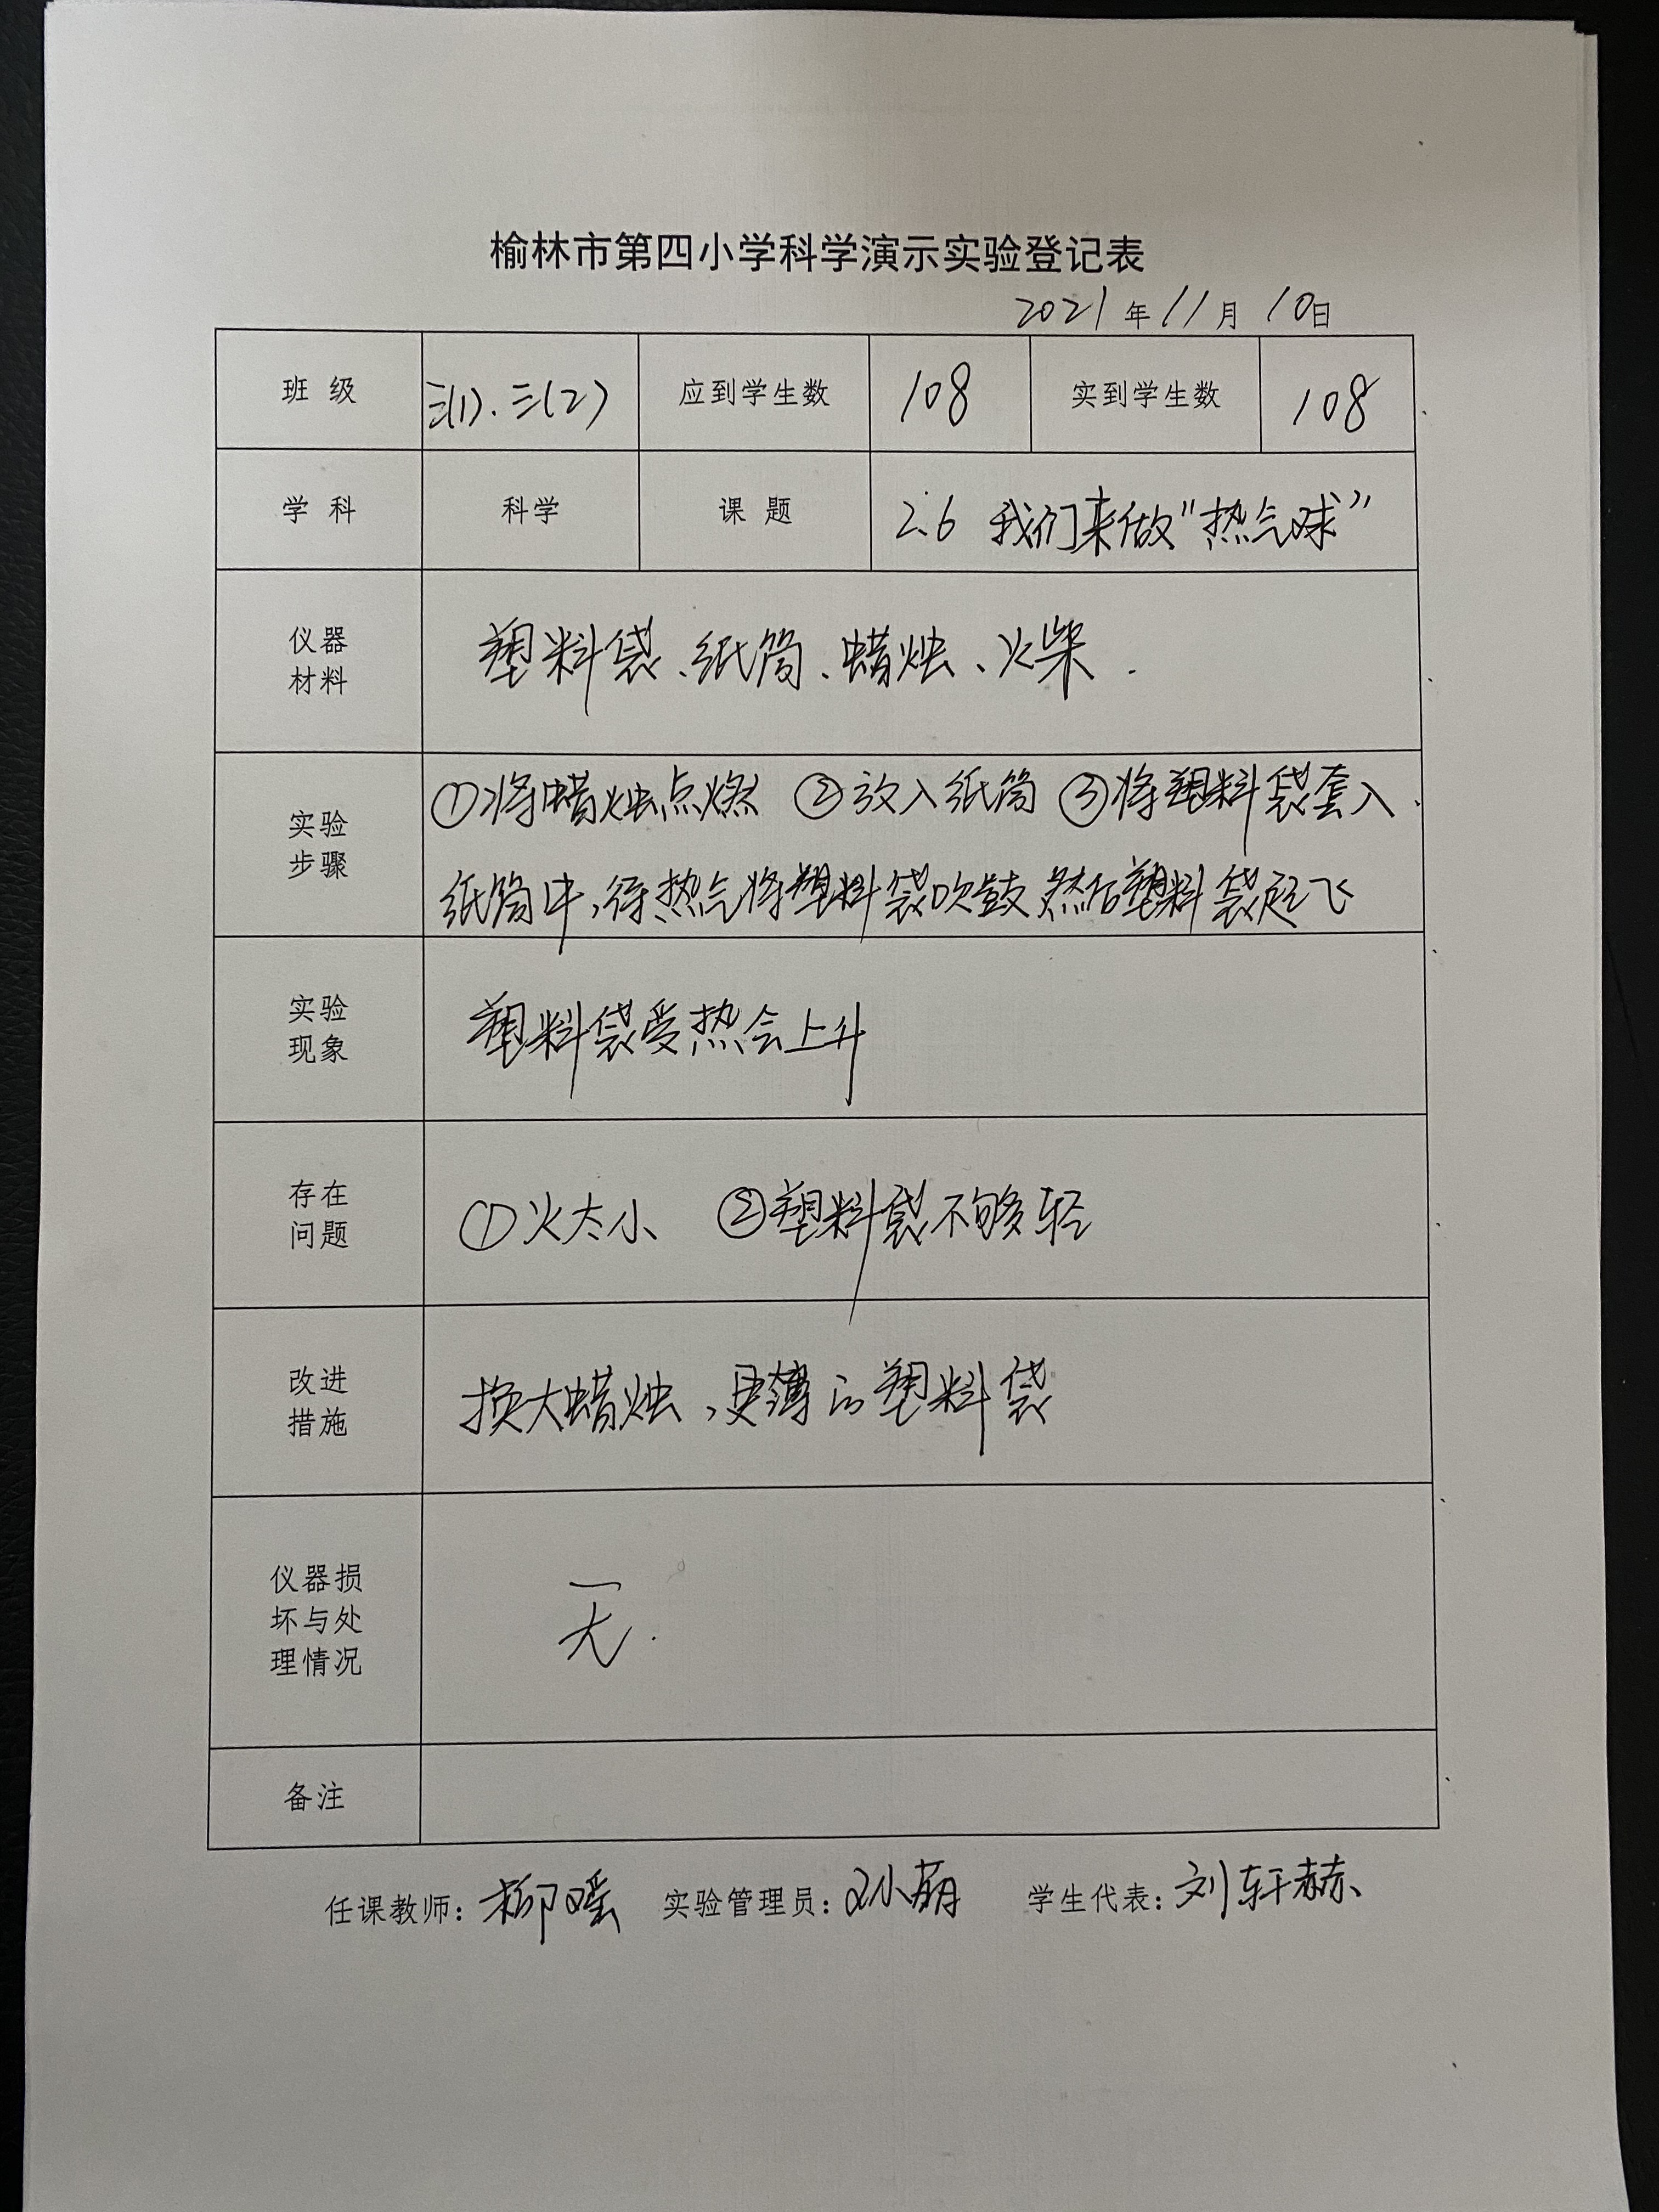 榆林市第四小学科学演示实验登记表
2021年11月10日
班级 三(1).三(2) 应到学生数 108 实到学生数 108
学科 科学 课题 2.6 我们来做"热气球"
仪器
材料
塑料袋、纸筒、蜡烛、火柴.
实验
步骤
①将蜡烛点燃 ②放入纸筒 ③将塑料袋套入
纸筒中,待热气将塑料袋吹鼓然后塑料袋起飞
实验
现象
塑料袋受热会上升
存在
问题
①火太小 ②塑料袋不够轻
改进
措施
换大蜡烛,更薄的塑料袋
仪器损
坏与处
理情况
无.
备注
任课教师:柳瑶 实验管理员:刘小萌 学生代表:刘轩赫